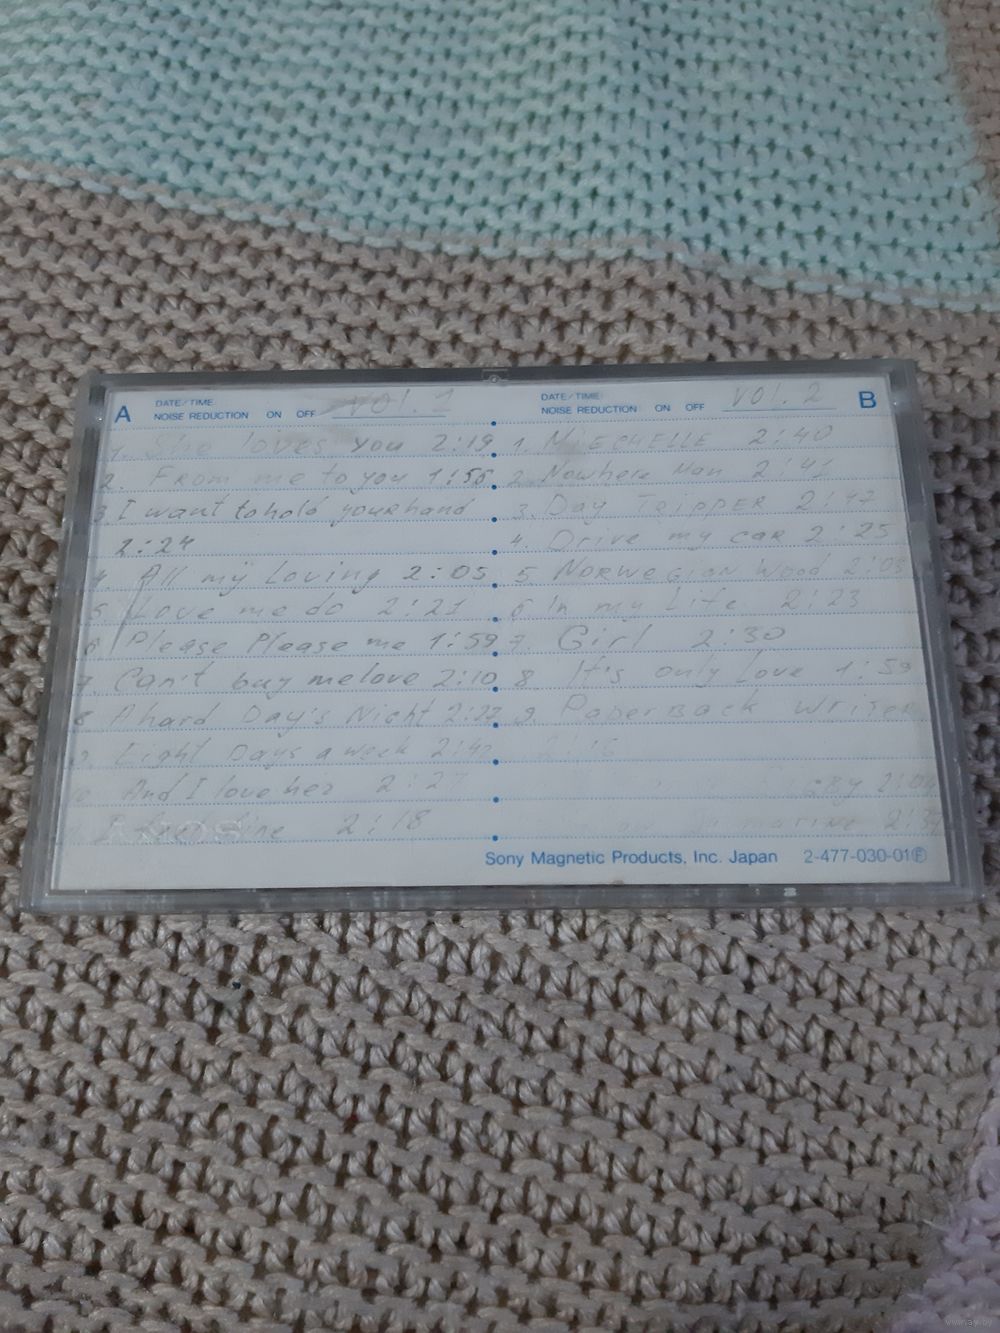 A DATE/TIME:
NOISE REDUCTION ON OFF VOL. 1
1. She loves you 2:19
2. From me to you 1:55
3 I want to hold your hand
2:24
4 All my Loving 2:05
5 Love me do 2:21
6 Please Please me 1:59
7. Can't buy me love 2:10
8 A hard Day's Night 2:27
9. Eight Days a week 2:42
10 And I love her 2:27
I feel fine 2:18
DATE/TIME: B
NOISE REDUCTION ON OFF VOL. 2
1. MIECHELLE 2:40
2. Nowhere Man 2:41
3. Day TRIPPER 2:47
4. Drive my car 2:25
5 NORWEGIAN Wood 2:03
6 In my Life 2:23
7. Girl 2:30
8 It's only Love 1:59
9. PaperBack WRITER
2:16
2:0
marine 2:3
Sony Magnetic Products, Inc. Japan 2-477-030-01Ⓕ
www.ay.by